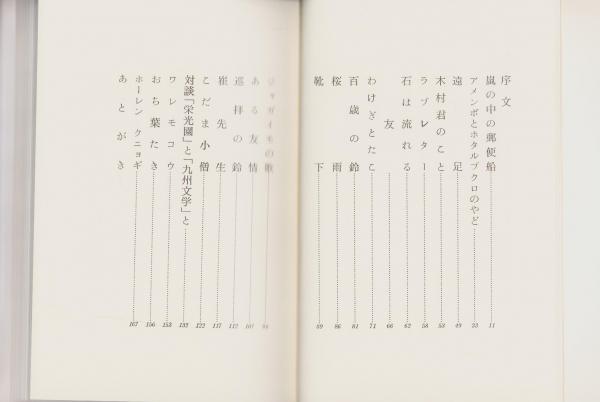 序文
嵐の中の郵便船 11
アメンボとホタルブクロのやど 33
遠足 49
木村君のこと 53
ラブレター 58
石は流れる 62
友 66
わけぎとたこ 71
百歳の鈴 81
桜雨 86
靴下 89
ジャガイモの歌 94
ある友情 107
巡拝の鈴 112
崔先生 117
こだま小僧 122
対談「栄光園」と「九州文学」と 132
ワレモコウ 153
おち葉たき 156
ホーレン クニョギ 167
あとがき